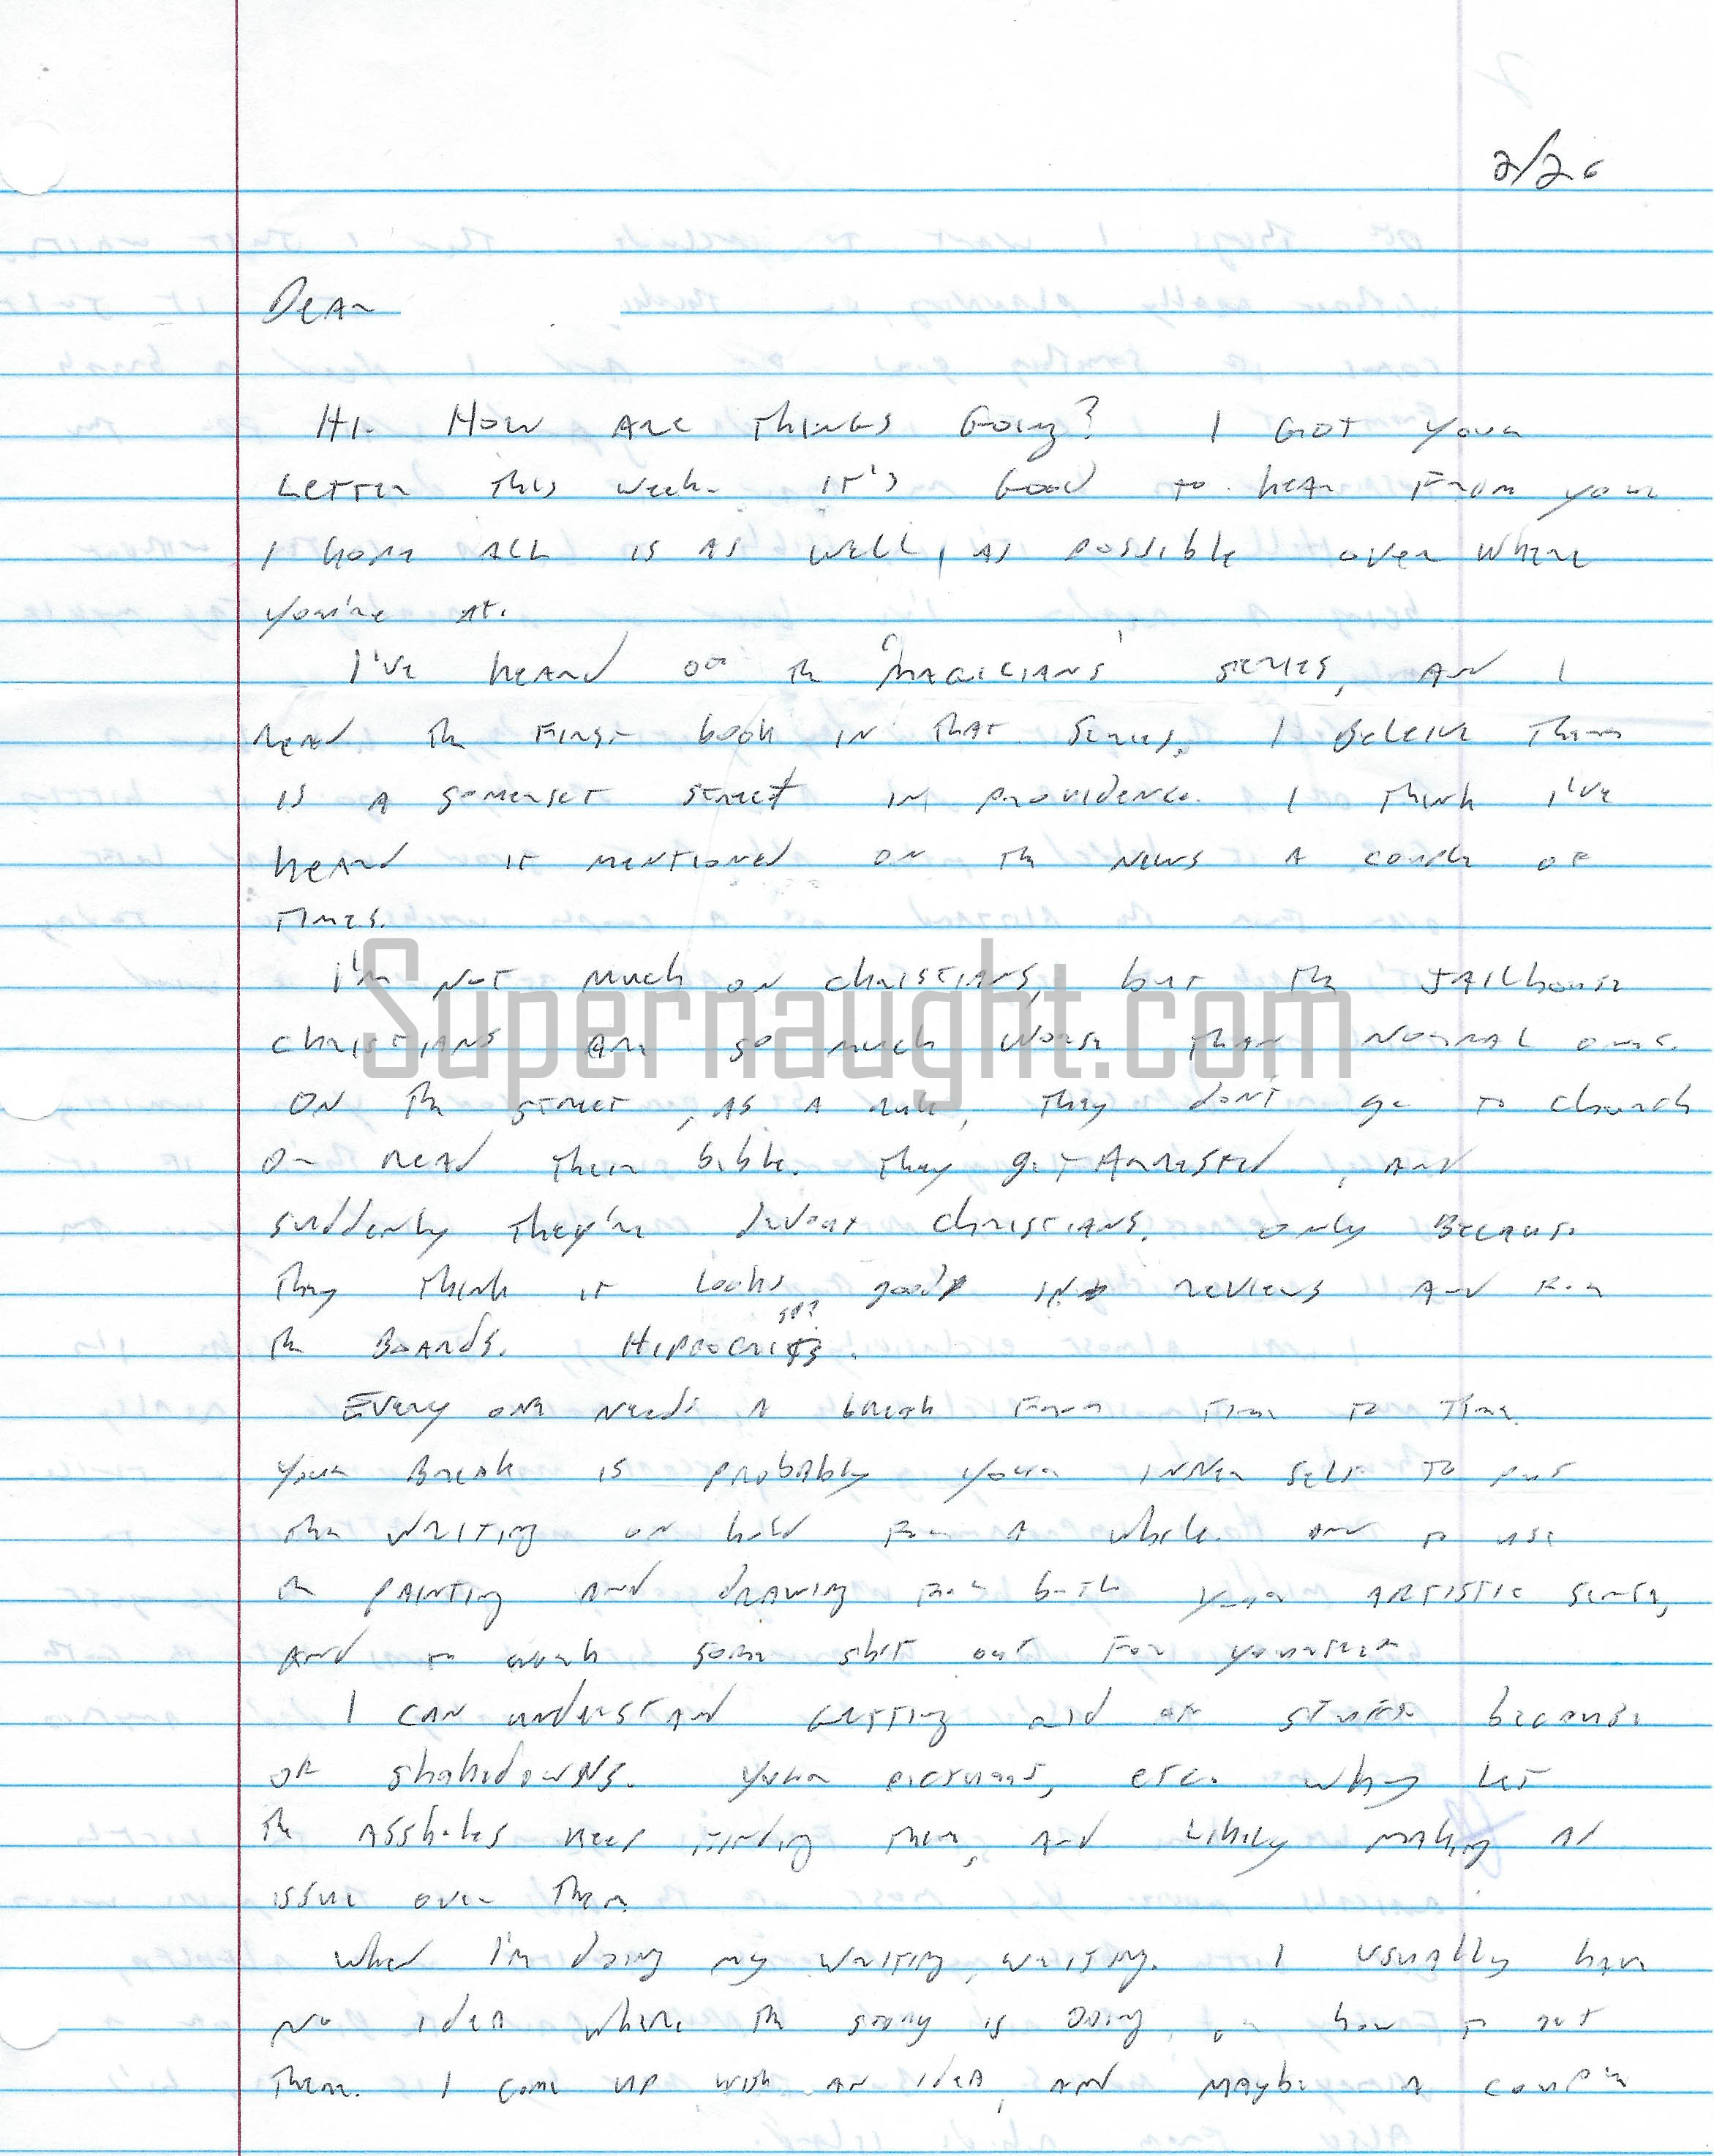 2/26
Dear
Hi. How are things Going? I Got your
Letter this week. It's Good to hear From you.
I hope All is as well, as possible over where
you're at.
I've heard of the 'Magicians' series, and I
read the First book in that Series. I Beleive There
is a Somerset street in providence. I think I've
heard it mentioned on the News a couple of
times.
I'm not much on christians, but the Jailhouse
Supernaught.com
christians are so much worse than normal ones.
On the street, as a rule, they don't go to church
or read their bible. They get Arrested, and
suddenly they're devout christians. Only Because
they think it looks good in reviews and for
sp?
the Boards. Hippocrits.
Every one needs a break from time to time.
Your Break is probably your inner self to put
the writing on hold for a while. and to use
the painting and drawing for both your artistic sense,
And to work some shit out for yourself.
I can understand getting rid of stuff because
of shakedowns. Your pictures, etc. why let
the assholes keep finding them, and likely making an
issue over them.
When I'm doing my writing, writing. I usually have
no idea where the story is going, or how to get
There. I come up with an idea, and maybe a couple